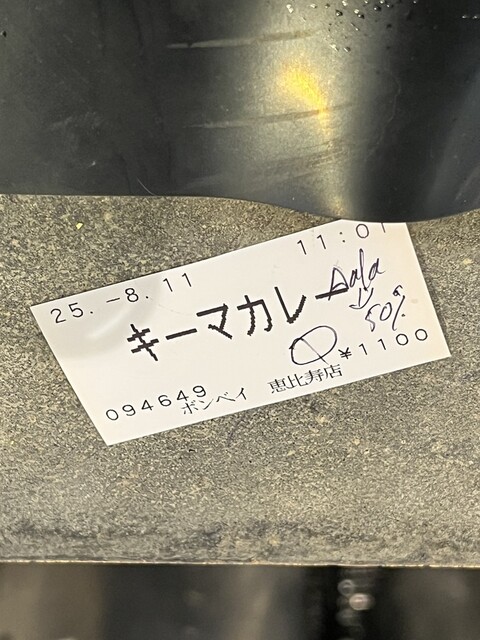 25.-8.11 11:01
キーマカレー
50%
¥1100
094649
ボンベイ 恵比寿店